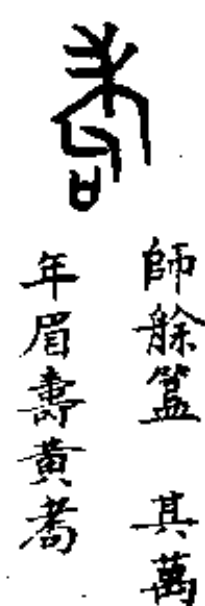 師艅簋 其萬
年眉壽黃耇